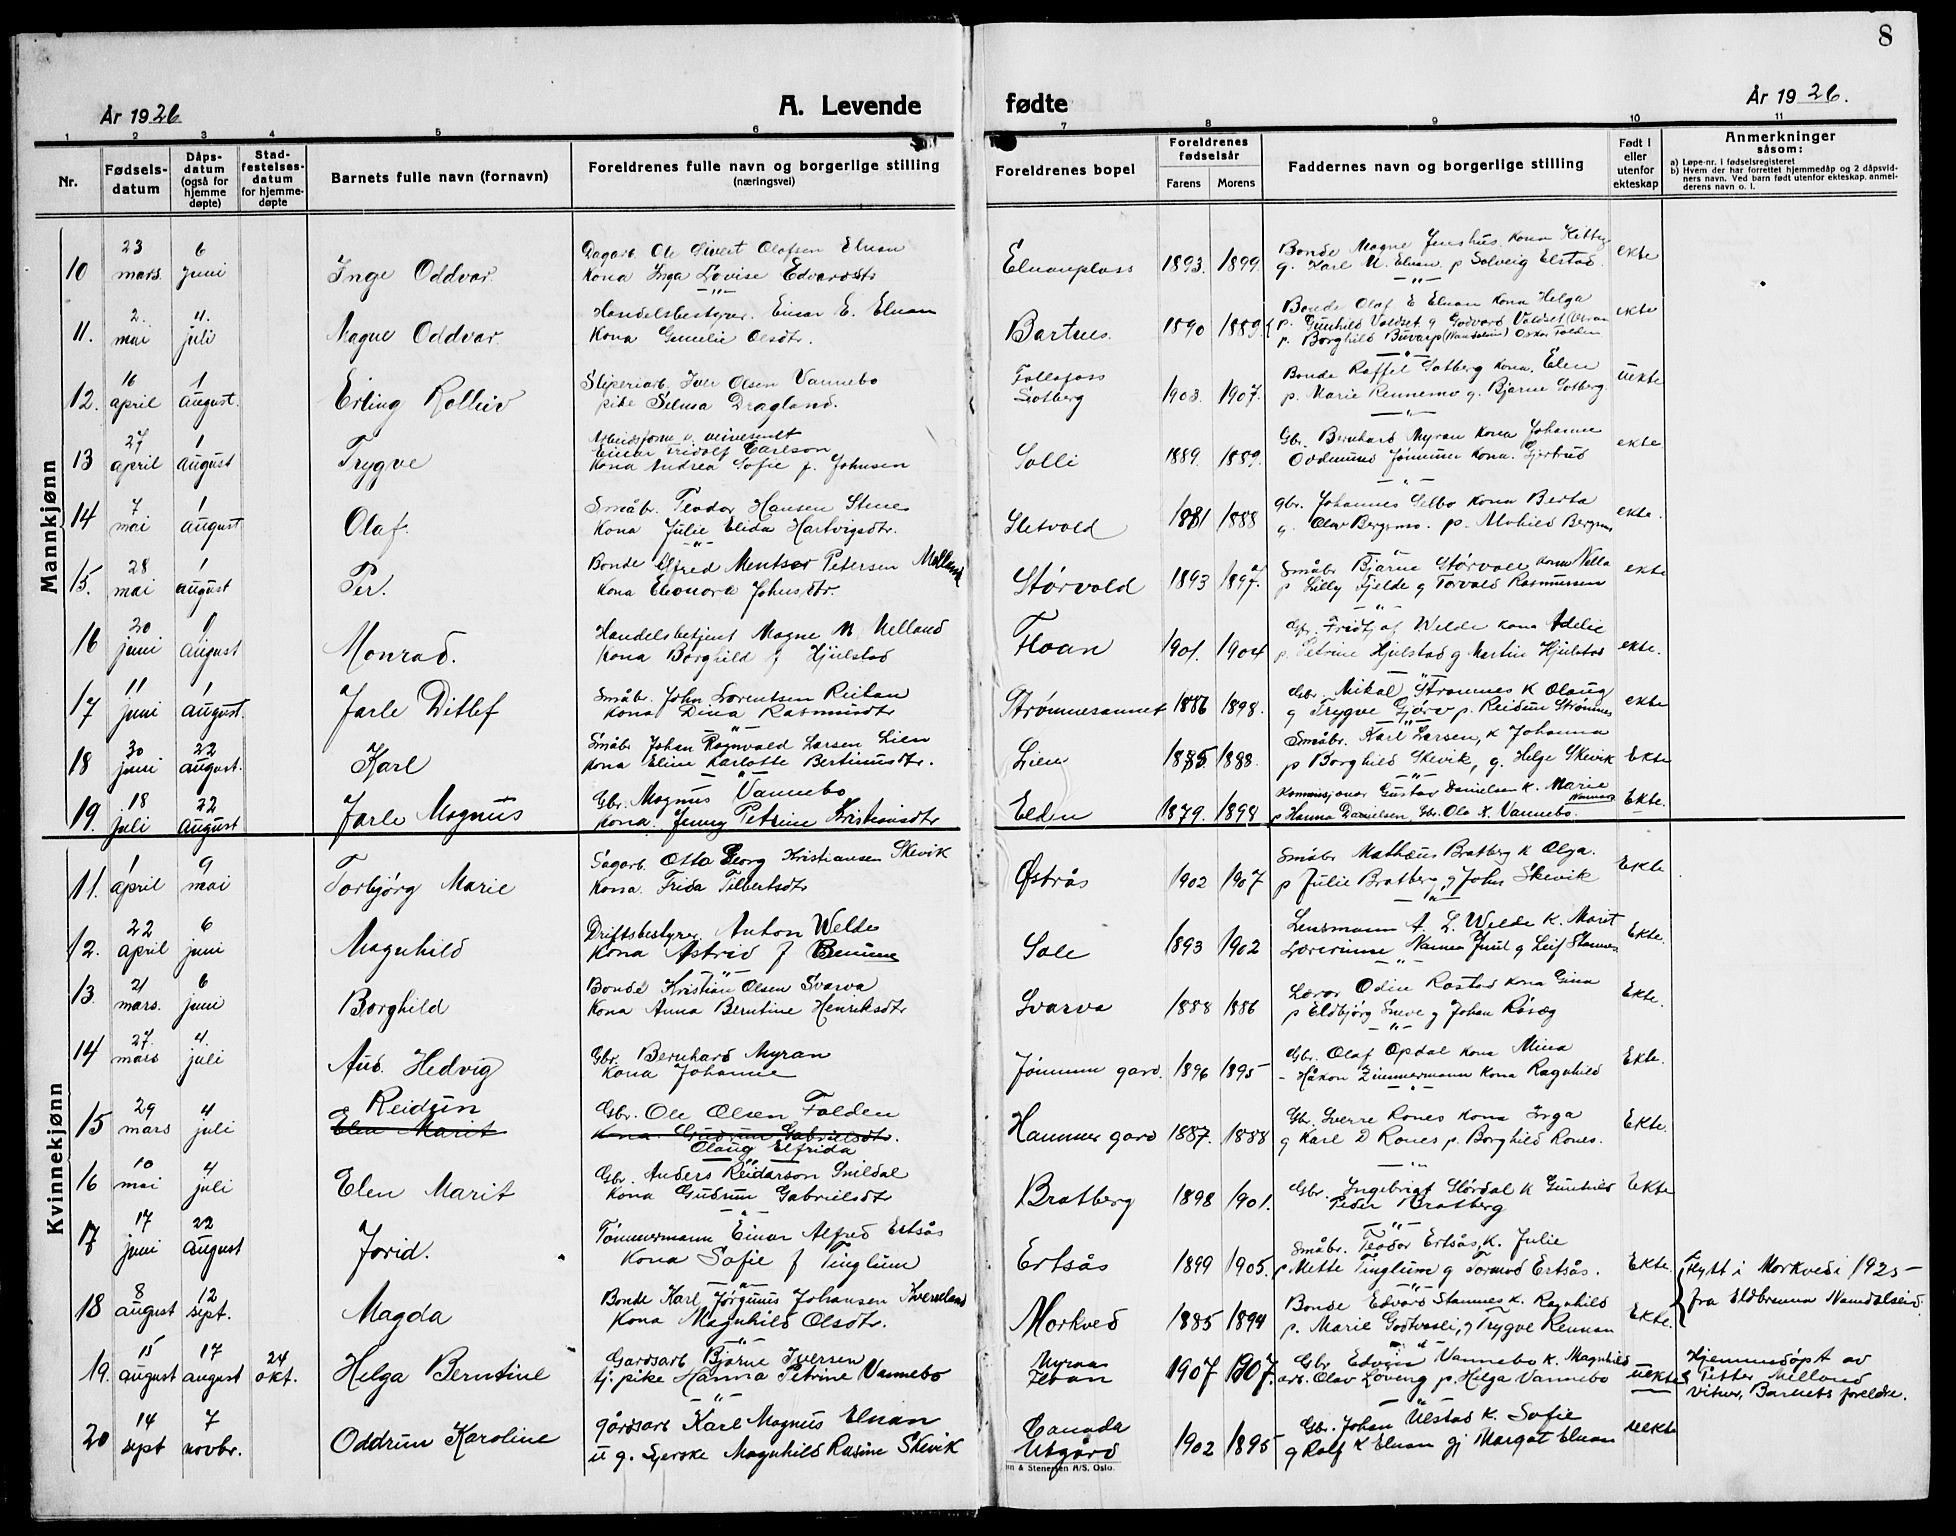 8
År 1926
A. Levende fødte
År 1926.
1 2 3 4 5 6 7 8 9 10 11
Nr.
Fødsels-datum
Dåps-datum (også for hjemme døpte)
Stad-festelses-datum for hjemme-døpte
Barnets fulle navn (fornavn)
Foreldrenes fulle navn og borgerlige stilling (næringsvei)
Foreldrenes bopel
Foreldrenes fødselsår
Farens Morens
Faddernes navn og borgerlige stilling
Født i eller utenfor ekteskap
Anmerkninger såsom:
a) Løpe-nr. i fødselsregisteret
b) Hvem der har forrettet hjemmedåp og 2 dåpsvid-
ners navn. Ved barn født utenfor ekteskap, anmel-
derens navn o. l.
Mannkjønn
10 23 mars. 6 juni Inge Oddvar.
Dagarb. Ole Sivert Olafsen Elnan
Kona Inga Lovise Edvardsdtr
Elnanplass 1893. 1899.
Bonde Magne Jenshus. Kona Kitty
g. Karl M. Elnan. p Solveig Elstad.
ekte
11. 2. mai 4. juli Magne Oddvar.
Handelsbestyrer. Einar E. Elnan
Kona Olsdtr.
Bartnes. 1890 1889
Bonde Olaf E Elnan Kona Helga
p. Gunhild Valdset g Godvard Valdset
p. Borghild Buvarp Oskar Folden
ekte
12. 16 april 1 august. Erling Rolleiv
Sliperiarb. Iver Olsen Vannebo
pike Selma Dragland.
Follafoss
Solberg 1903. 1907.
Bonde Raffel Solberg Kona. Elen
p. Marie Rennemo g. Bjarne Solberg.
uekte
13 27 april 1 august Trygve
Einar Fridolf Carlson
Kona Andrea Sofie f. Johnsen
Solli 1889. 1889.
Gbr. Bernhard Myran Kona Johanne
Oddmund Kona. Gjertrud
ekte
14 7 mai 1 august Olaf.
Småbr. Teodor Hansen Stene
Kona Julie Elida Hartvigsdtr.
Sletvold 1881 1888
gbr. Johannes Selbo Kona Berta
„ Olav Bergsmo. p.
ekte.
15. 28 mai 1 august Per.
Bonde Alfred Petersen
Kona Eleonora Johnsdtr.
Størvold 1893 1897.
Småbr Bjarne Størvold Kona
p Lilly Fjelde g Torvald Rasmussen
ekte
16 20 juni 1 august Monrad.
Handelsbetjent Magne M. Melland
Kona Borghild f Hjulstad
Floan 1901. 1904
Gbr. Fridtjof Welde Kona Adelie
p. Petrine Hjulstad g Martin Hjulstad
ekte.
17 11 juni 1 august. Jarle Ditlef
Småbr. John Lorentsen Reitan
Kona Dina Rasmusdtr
Strømnesaunet 1886 1898.
Gbr. Mikal Strømnes K Olaug
g Trygve Gjørv p. Reidun Strømnes
ekte
18 30 juni 22 august. Karl
Småbr Johan Ragnvald Larsen Lien
Kona Eline Karlotte Bertinusdtr.
Lien 1885 1888.
Småbr. Karl Larsen, K Johanna
p Borghild Skevik, g. Helge Skevik
Ekte
19. 18 juli 22 august Jarle Magnus
Gbr. Magnus Vannebo
Kona. Jenny Petrine Kristiansdtr
Elden 1879. 1894
Kommisjonær Gustav Danielsen K. Marie
p Hanna Danielsen, Gbr. Ola K. Vannebo.
Ekte.
Kvinnekjønn
11. 1 april 9 mai Torbjørg Marie
Sagarb. Otto Georg Kristiansen Skevik
Kona. Frida Tilbertsdtr
Østrås 1902 1907
Småbr Mathæus Bratberg K Olga.
p Julie Bratberg, g John Skevik
Ekte
12. 22 april 6 juni Magnhild
Driftsbestyrer. Anton Welde
Kona Astrid f
Sole 1893 1902
Lensmann A. L. Welde K. Marit
Lærerinne g Leif Stamnes
Ekte.
13. 21 mars. 6 juni Borghild
Bonde Kristian Olsen Svarva
Kona Anna Berntine Henriksdtr
Svarva 1888 1886
Lærer Odin Rostad Kona Gina
p Eldbjørg Sneve g Johan Råsæg
Ekte.
14 27. mars 4. juli Aud. Hedvig
Gbr. Bernhard Myran
Kona Johanne
Jønnum gard. 1896 1895
Gbr. Olaf Opdal Kona Mina
– Håkon Zimmermann Kona Ragnhild
Ekte.
15 29 mars 4 juli Reidun
Elen Marit
Gbr. Ole Olsen Folden
Kona. Gudrun Gabrielsdtr.
Olaug Elfrida
Hammer gard 1887. 1888
Gbr. Sverre Rones Kona Inga
g Karl D Rones p. Borghild Rones.
Ekte.
16 10 mai 4 juli Elen Marit
Gbr. Anders Reidarson Snildal
Kona Gudrun Gabrielsdtr
Bratberg 1898 1901.
Gbr. Ingebrigt Stördal K Gunhild
Peder Bratberg
Ekte
17 17 juni 22 august Jorid.
Tømmermann Einar Alfred Ertsås
Kona Sofie f Tinglum
Ertsås 1899 1905.
Småbr. Teodor Ertsås, K. Julie
p Mette Tinglum g Tormod Ertsås.
Ekte.
18 8 august 12 sept. Magda
Bonde Karl Jørginus Johansen Kverkland
Kona Magnhild Olsdtr.
Morkved 1885 1894
Bonde Edvard Stamnes K. Ragnhild
p. Marie Godtvasli, g Trygve Rennan
Ekte.
Flytt i Morkved i 1925 –
fra Eldbrenna Namdalseid.
19. 15 august 17 august 24 okt. Helga Berntine
Gardsarb Bjarne Iversen
tj. pike Hanna Petrine Vannebo
Myran
1907 1907.
Gbr Edvin Vannebo K. Magnhild
arb. Olav Løveng p. Helga Vannebo
uekte
Hjemmedøpt av
Petter Melland
vitner, Barnets foreldre.
20 14 sept 7 novbr. Oddrun Karoline
gårdsarb Karl Magnus Elnan
u g. Gjerske Magnhild Rasine Skevik
Canada
Utgård 1902 1895
Gbr. Johan Ulstad K. Sofie
g Rolf K Elnan gj Margot Elnan
uekte
& Stenersen A/S. Oslo.